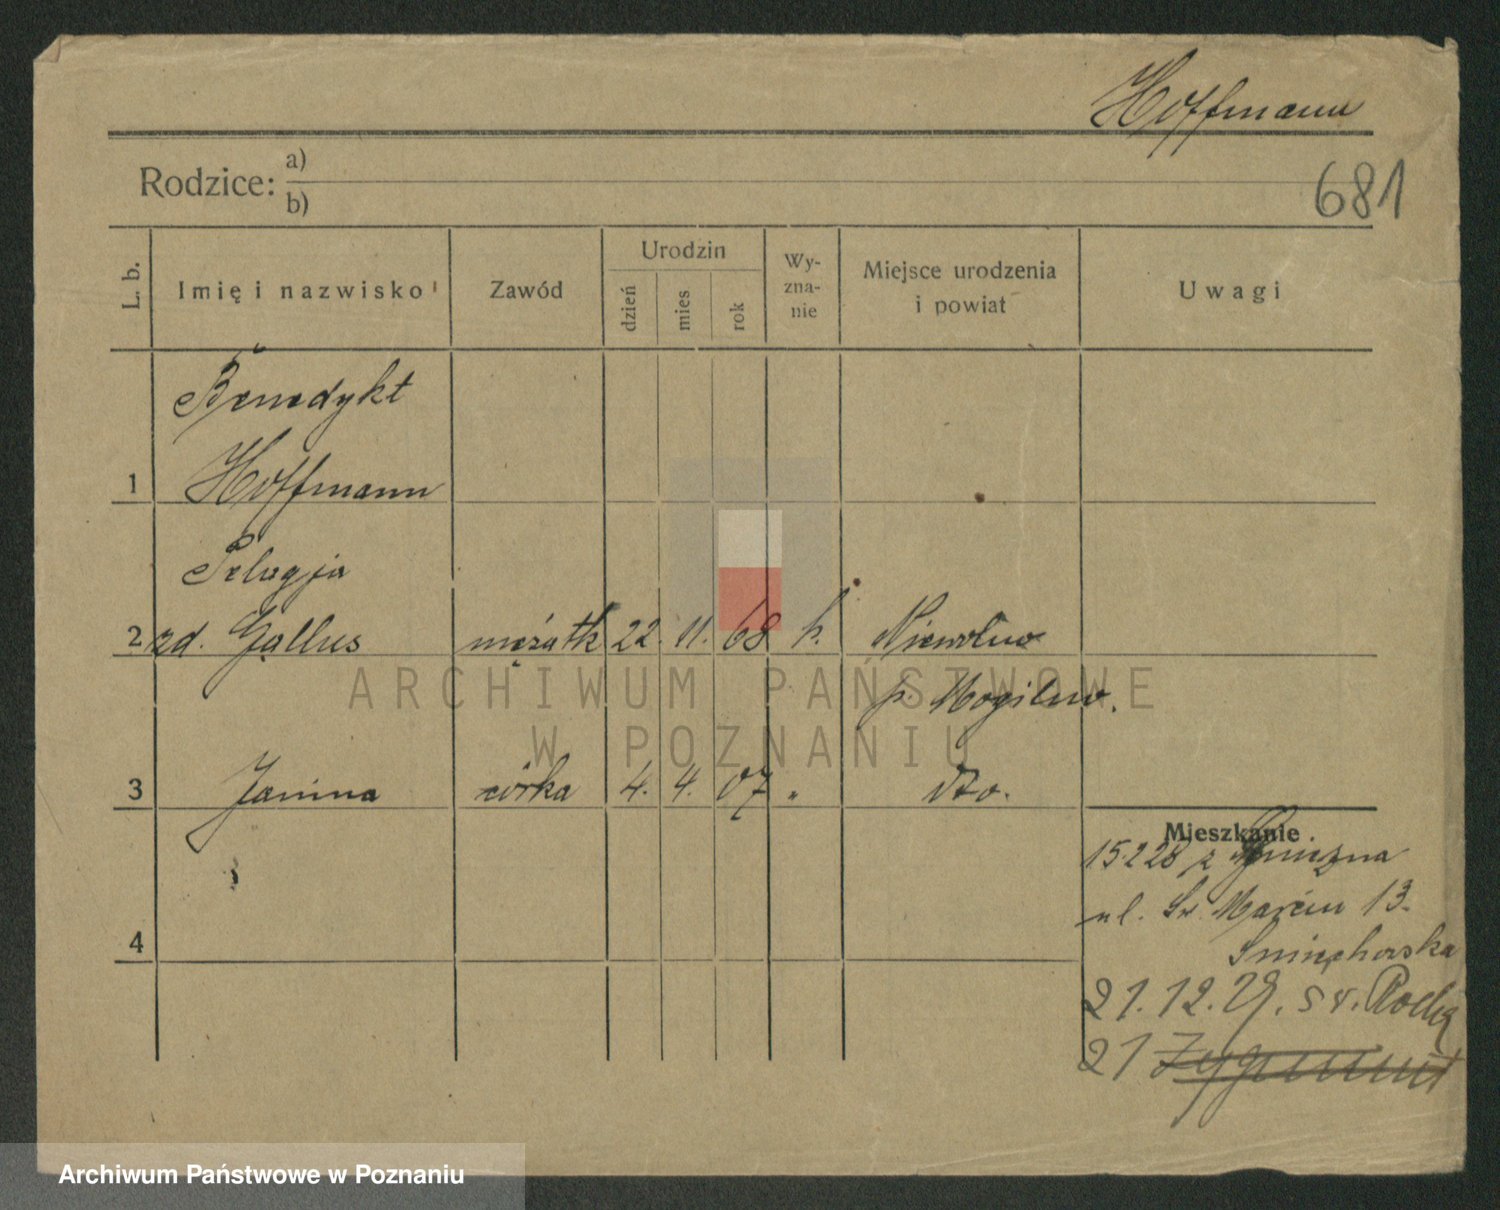 Hoffmann
Rodzice: a)
b)
681
L. b.
Imię i nazwisko
Zawód
Urodzin
dzień
mies
rok
Wy-
zna-
nie
Miejsce urodzenia
i powiat
Uwagi
Benedykt
1 Hoffmann
Pelagja
2 zd. Gallus mężatk 22. 11. 68 k. Niewolno
p. Mogilno.
3 Janina córka 4. 4. 07 " dto.
Mieszkanie
15.2.28 z Gniezna
ul. Św. Marcin 13.
4
21.12.29. św. Rocha
21 Zygmunt
ARCHIWUM PAŃSTWOWE
W POZNANIU
Archiwum Państwowe w Poznaniu